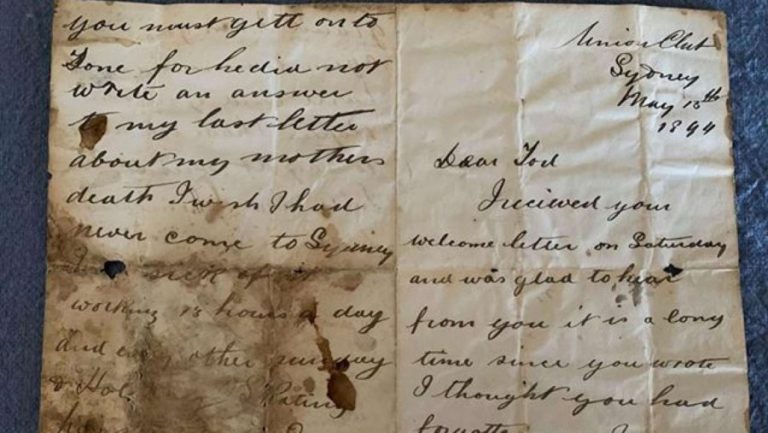 Union Club
Sydney
May
1894
Dear Tod
I recieved your
welcome letter on Saturday
and was glad to hear
from you it is a long
time since you wrote
I thought you had
you must gett on to
Tone for he did not
write an answer
to my last letter
about my mothers
death I wish I had
never come to Sydney
sick of it
working 18 hours a day
and every other sunday